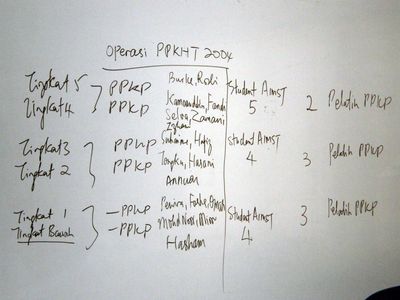 Operasi PPKHT 2004
Tingkat 5 PPKP Burke, Rosli Student AIMST 2 Pelatih PPKP
Tingkat 4 PPKP Kamarudin, Fandi 5
Selva, Zamani
Tingkat 3 PPKP Hafiz Student AIMST 3 Pelatih PPKP
Tingkat 2 PPKP Tengku, Hasani 4
Annuar
Tingkat 1 - PPKP Student AIMST 3 Pelatih PPKP
Tingkat Bawah - PPKP Mohd Nor, 4
Hasham